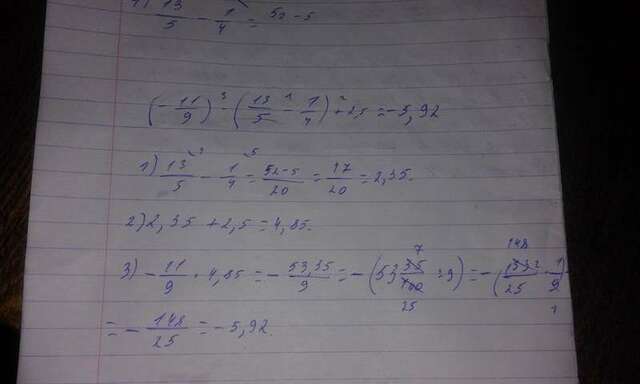 1) 13/5 - 1/4 = 52-5
(-11/9) 3 - (13/5 1 - 1/4) 2 + 2,5 = -5,92
1) 13/5 - 1/4 = 52-5/20 = 47/20 = 2,35.
2) 2,35 + 2,5 = 4,85.
3) -11/9 · 4,85 = - 53,35/9 = -(53 35/100 7/25 : 9) = -(1332/25 148 · 1/9 1)
= - 148/25 = -5,92.